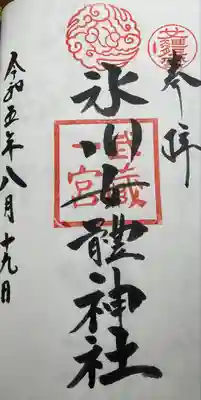 奉拝
武蔵
一宮
氷川女體神社
令和五年八月十九日